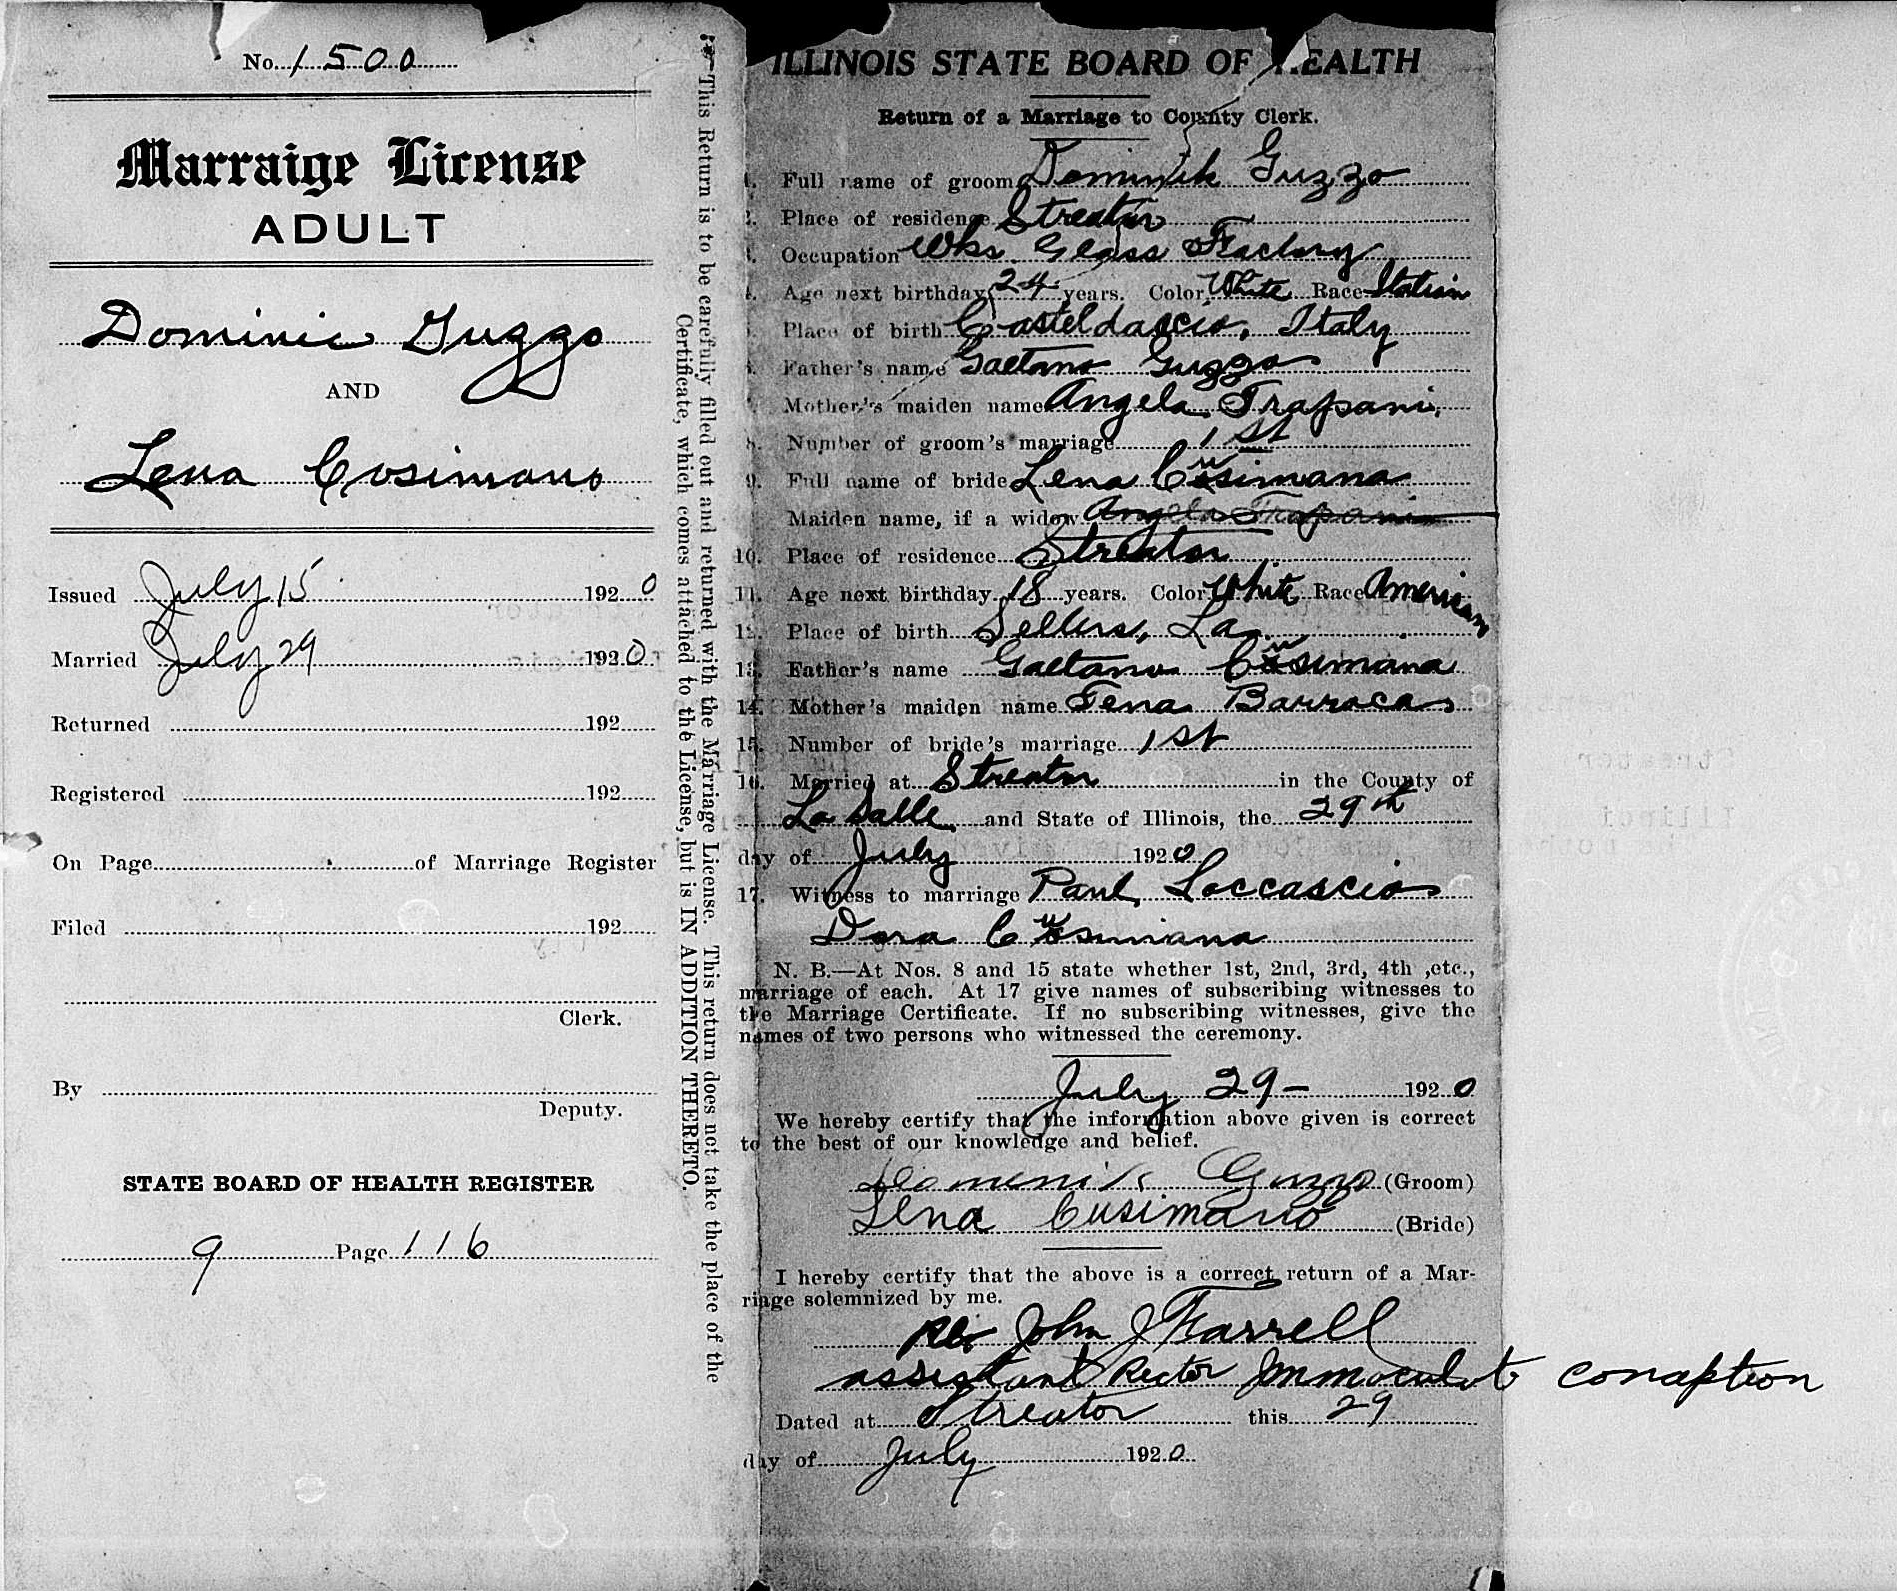 No. 1500
Marraige License
ADULT
Dominic Guzzo
AND
Lena Cosimano
Issued July 15 1920
Married July 29 1920
Returned 192
Registered 192
On Page of Marriage Register
Filed 192
Clerk.
By
Deputy.
STATE BOARD OF HEALTH REGISTER
9 Page 116
This Return is to be carefully filled out and returned with the Marriage License. This return does not take the place of the
Certificate, which comes attached to the License, but is IN ADDITION THERETO.
ILLINOIS STATE BOARD OF HEALTH
Return of a Marriage to County Clerk.
1. Full name of groom Dominik Guzzo
2. Place of residence Streator
3. Occupation Wks Glass Factory
4. Age next birthday 24 years. Color White Race Italian
5. Place of birth Casteldaccia, Italy
6. Father's name Gaetano Guzzo
7. Mother's maiden name Angela Trapani
8. Number of groom's marriage 1st
9. Full name of bride Lena Cusimana
Maiden name, if a widow Angela Trapani
10. Place of residence Streator
11. Age next birthday 18 years. Color White Race American
12. Place of birth Sellers, La
13. Father's name Gaetano Cusimana
14. Mother's maiden name Fena Barraca
15. Number of bride's marriage 1st
16. Married at Streator in the County of
La Salle and State of Illinois, the 29th
day of July 1920
17. Witness to marriage Paul Loccascio
Dora Cusimana
N. B.—At Nos. 8 and 15 state whether 1st, 2nd, 3rd, 4th ,etc.,
marriage of each. At 17 give names of subscribing witnesses to
the Marriage Certificate. If no subscribing witnesses, give the
names of two persons who witnessed the ceremony.
July 29- 1920
We hereby certify that the information above given is correct
to the best of our knowledge and belief.
Domenik Guzzo (Groom)
Lena Cusimano (Bride)
I hereby certify that the above is a correct return of a Mar-
riage solemnized by me.
Rev John J Farrell
assistant Rector Immaculate conaption
Dated at Streator this 29
day of July 1920